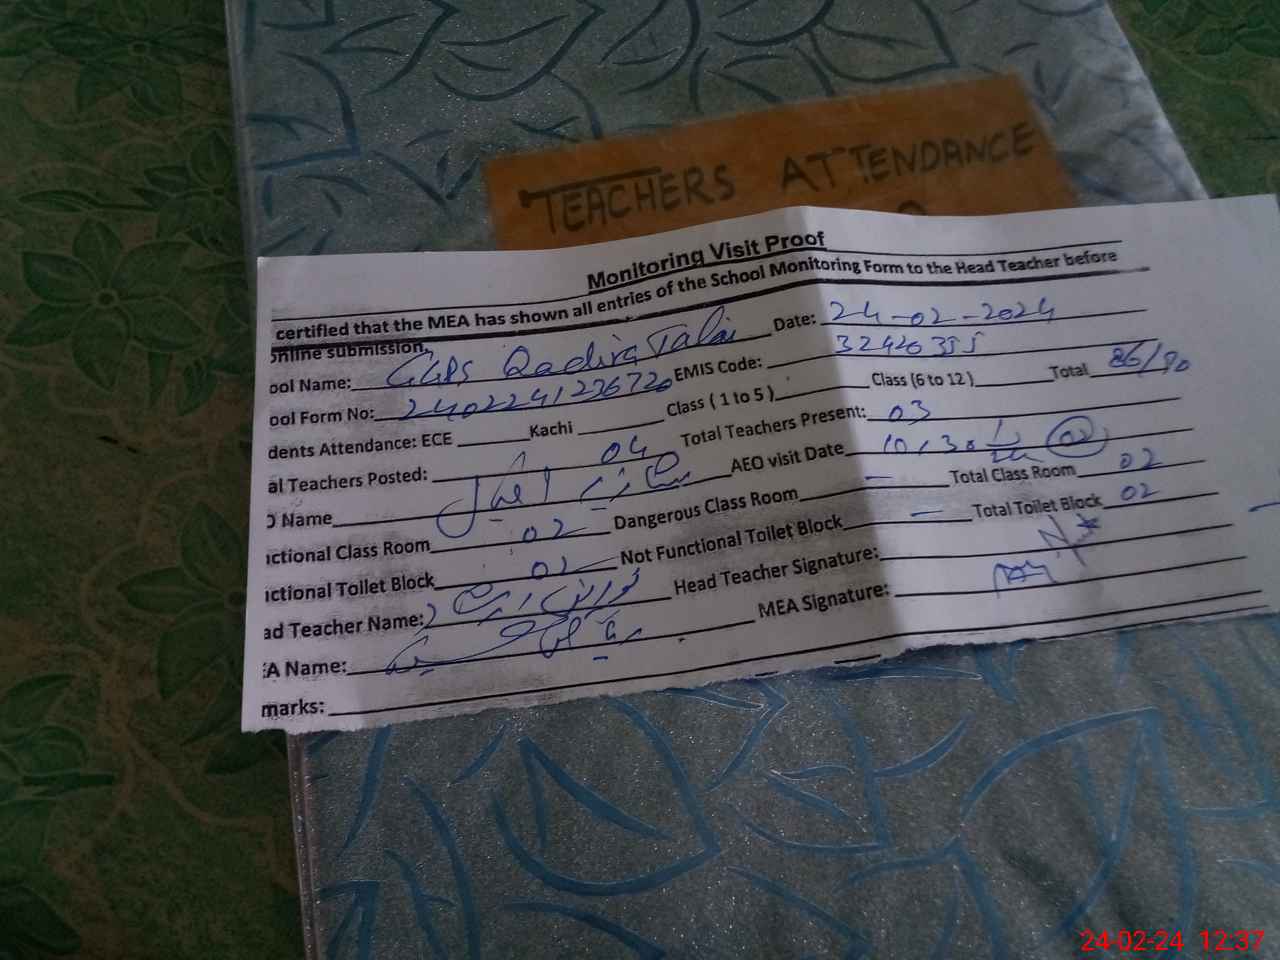 TEACHERS ATTENDANCE
Monitoring Visit Proof
certified that the MEA has shown all entries of the School Monitoring Form to the Head Teacher before
online submission.
ool Name: GGPS Qadira Talai Date: 24-02-2024
ool Form No: 2402241236720 EMIS Code: 32420355
dents Attendance: ECE Kachi Class ( 1 to 5 ) Class (6 to 12 ) Total 86/90
al Teachers Posted: 04 Total Teachers Present: 03
O Name AEO visit Date
ctional Class Room 02 Dangerous Class Room — Total Class Room 02
ctional Toilet Block 02 Not Functional Toilet Block — Total Toilet Block 02
ad Teacher Name: Head Teacher Signature:
EA Name: MEA Signature:
marks:
24-02-24 12:37